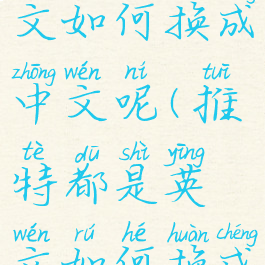 文如何换成
zhōng wén ní tuī
中文呢(推
tè dū shì yīng
特都是英
wén rú hé huàn chéng
文如何换成